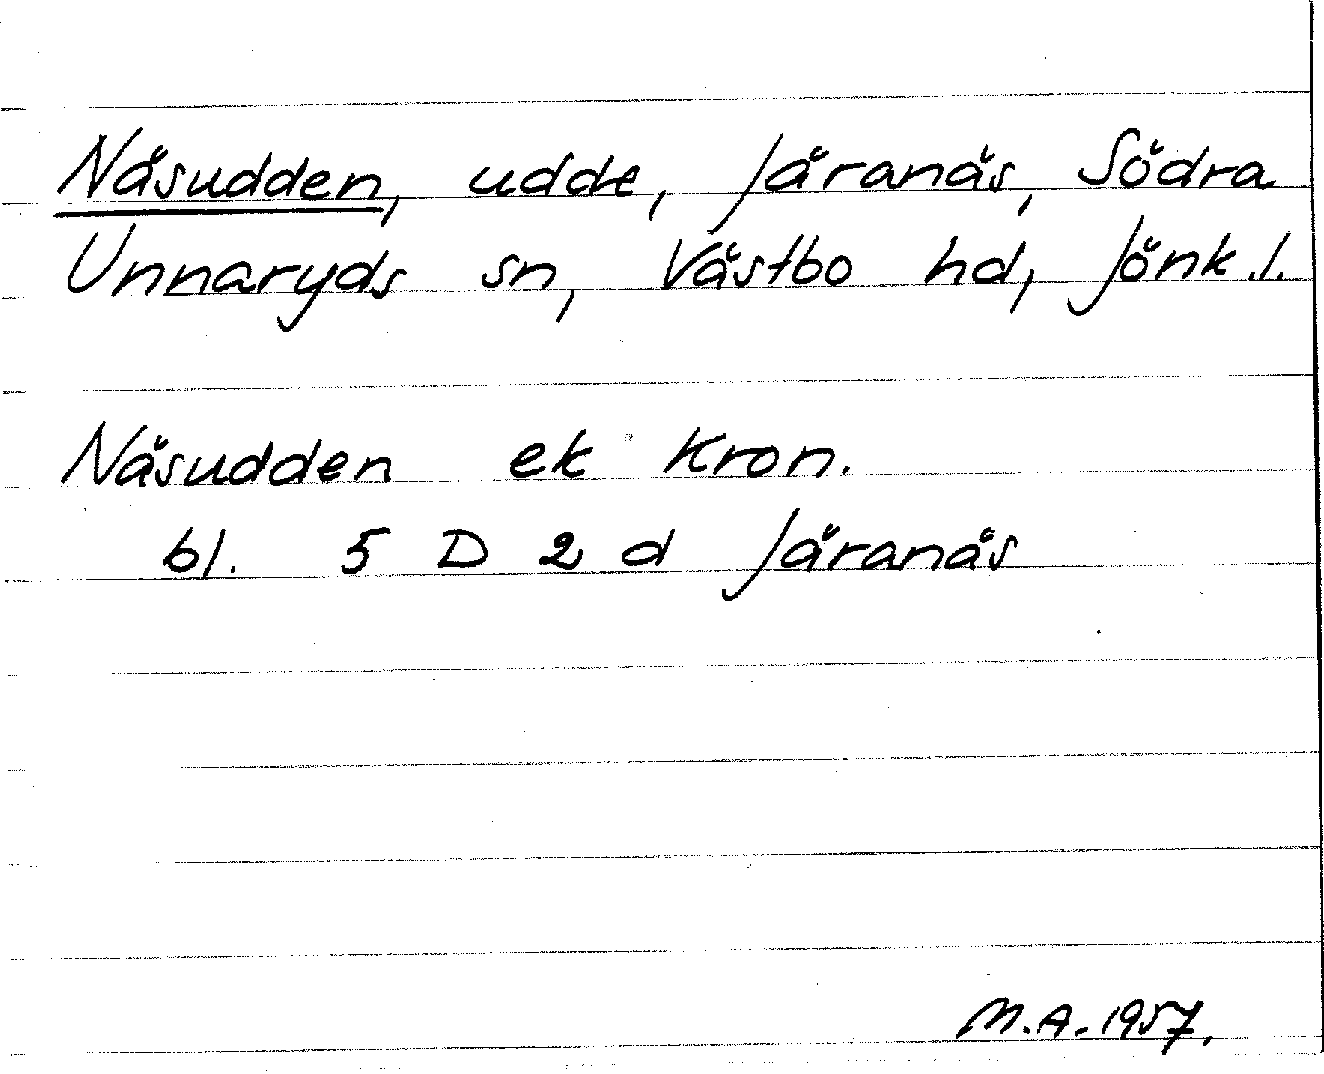 Näsudden, udde, Järanäs, Södra
Unnaryds sn, Västbo hd, Jönk.l.
Näsudden ek Kron.
bl. 5 D 2 d Järanäs
M.A. 1957.